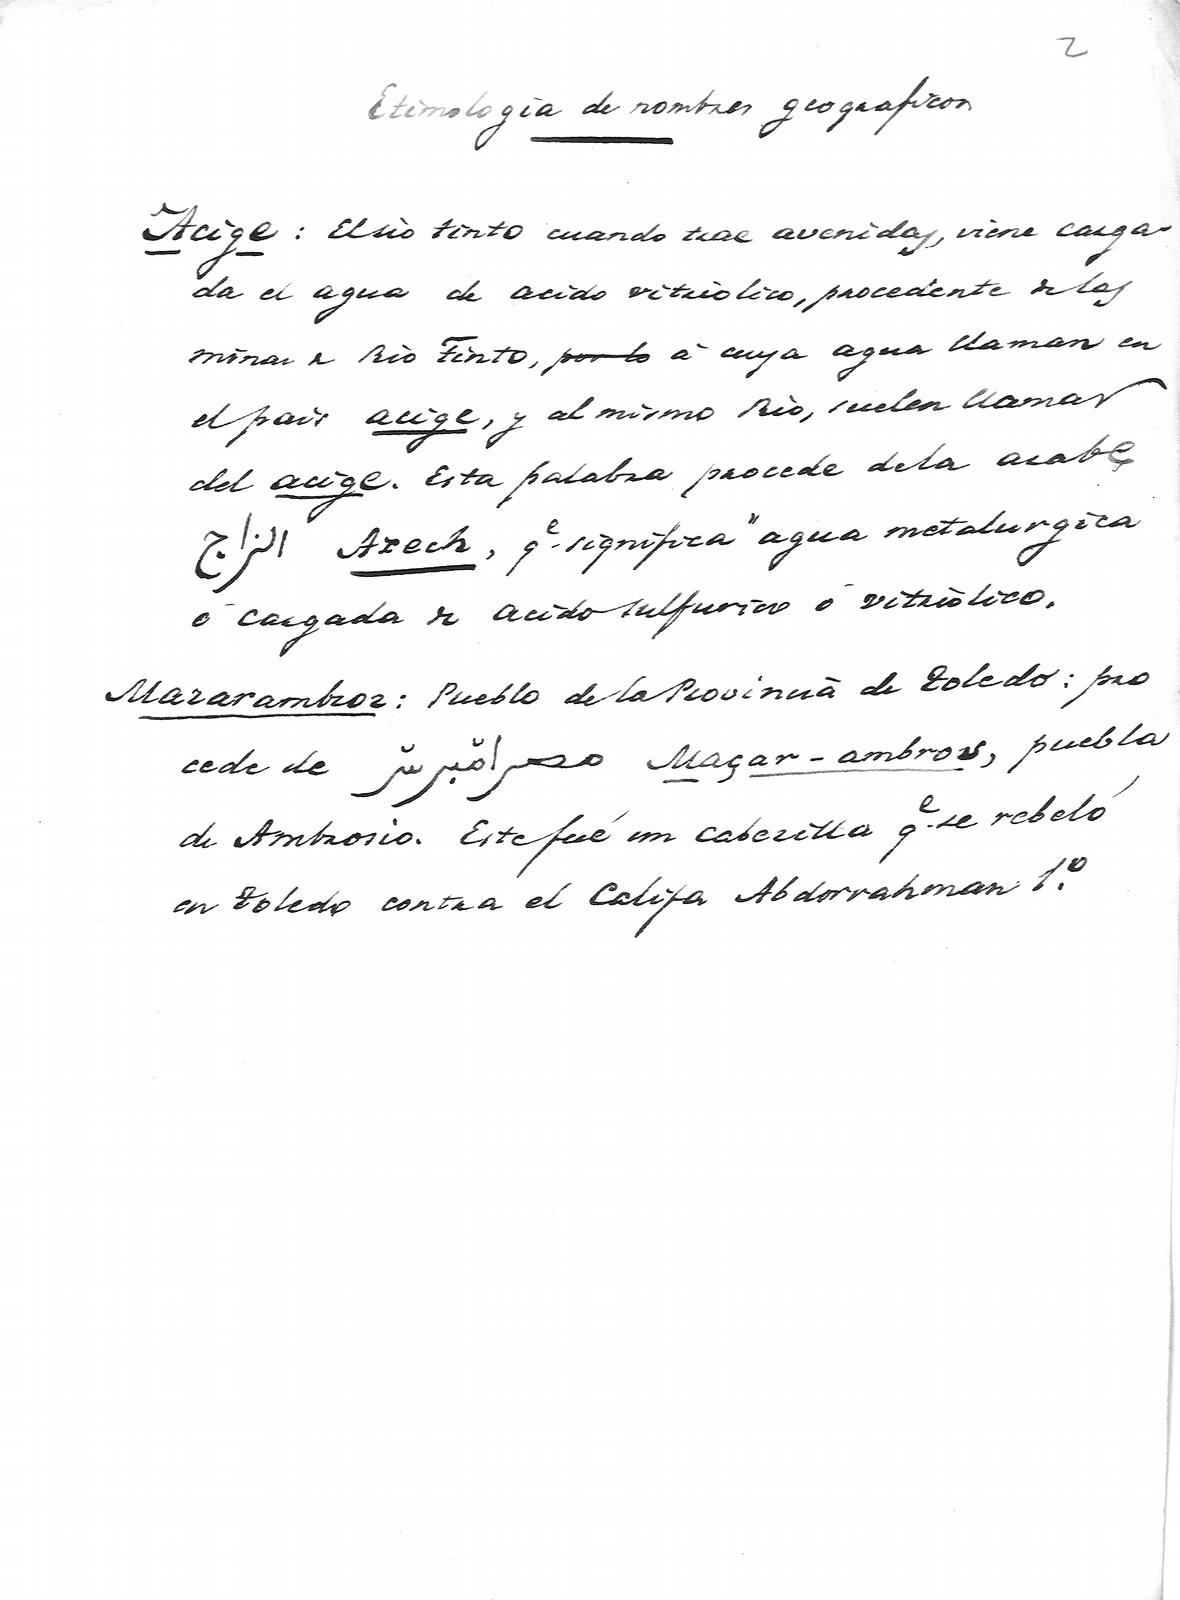 2
Etimologia de nombres geograficos
Acige : El rio tinto cuando trae avenidas, viene carga-
da el agua de acido vitriolico, procedente de las
minas de Rio Tinto, por lo á cuya agua llaman en
el pais acige, y al mismo Rio, suelen llamar
del acige. Esta palabra procede de la arabe
الزاج Azech, qe significa "agua metalurgica
ó cargada de acido sulfurico ó vitriolico.
Mazarambroz : Pueblo de la Provincia de Toledo : pro
cede de Maçar-ambros, puebla
de Ambrosio. Este fué un cabezilla qe se rebeló
en Toledo contra el Califa Abdorrahman 1.º